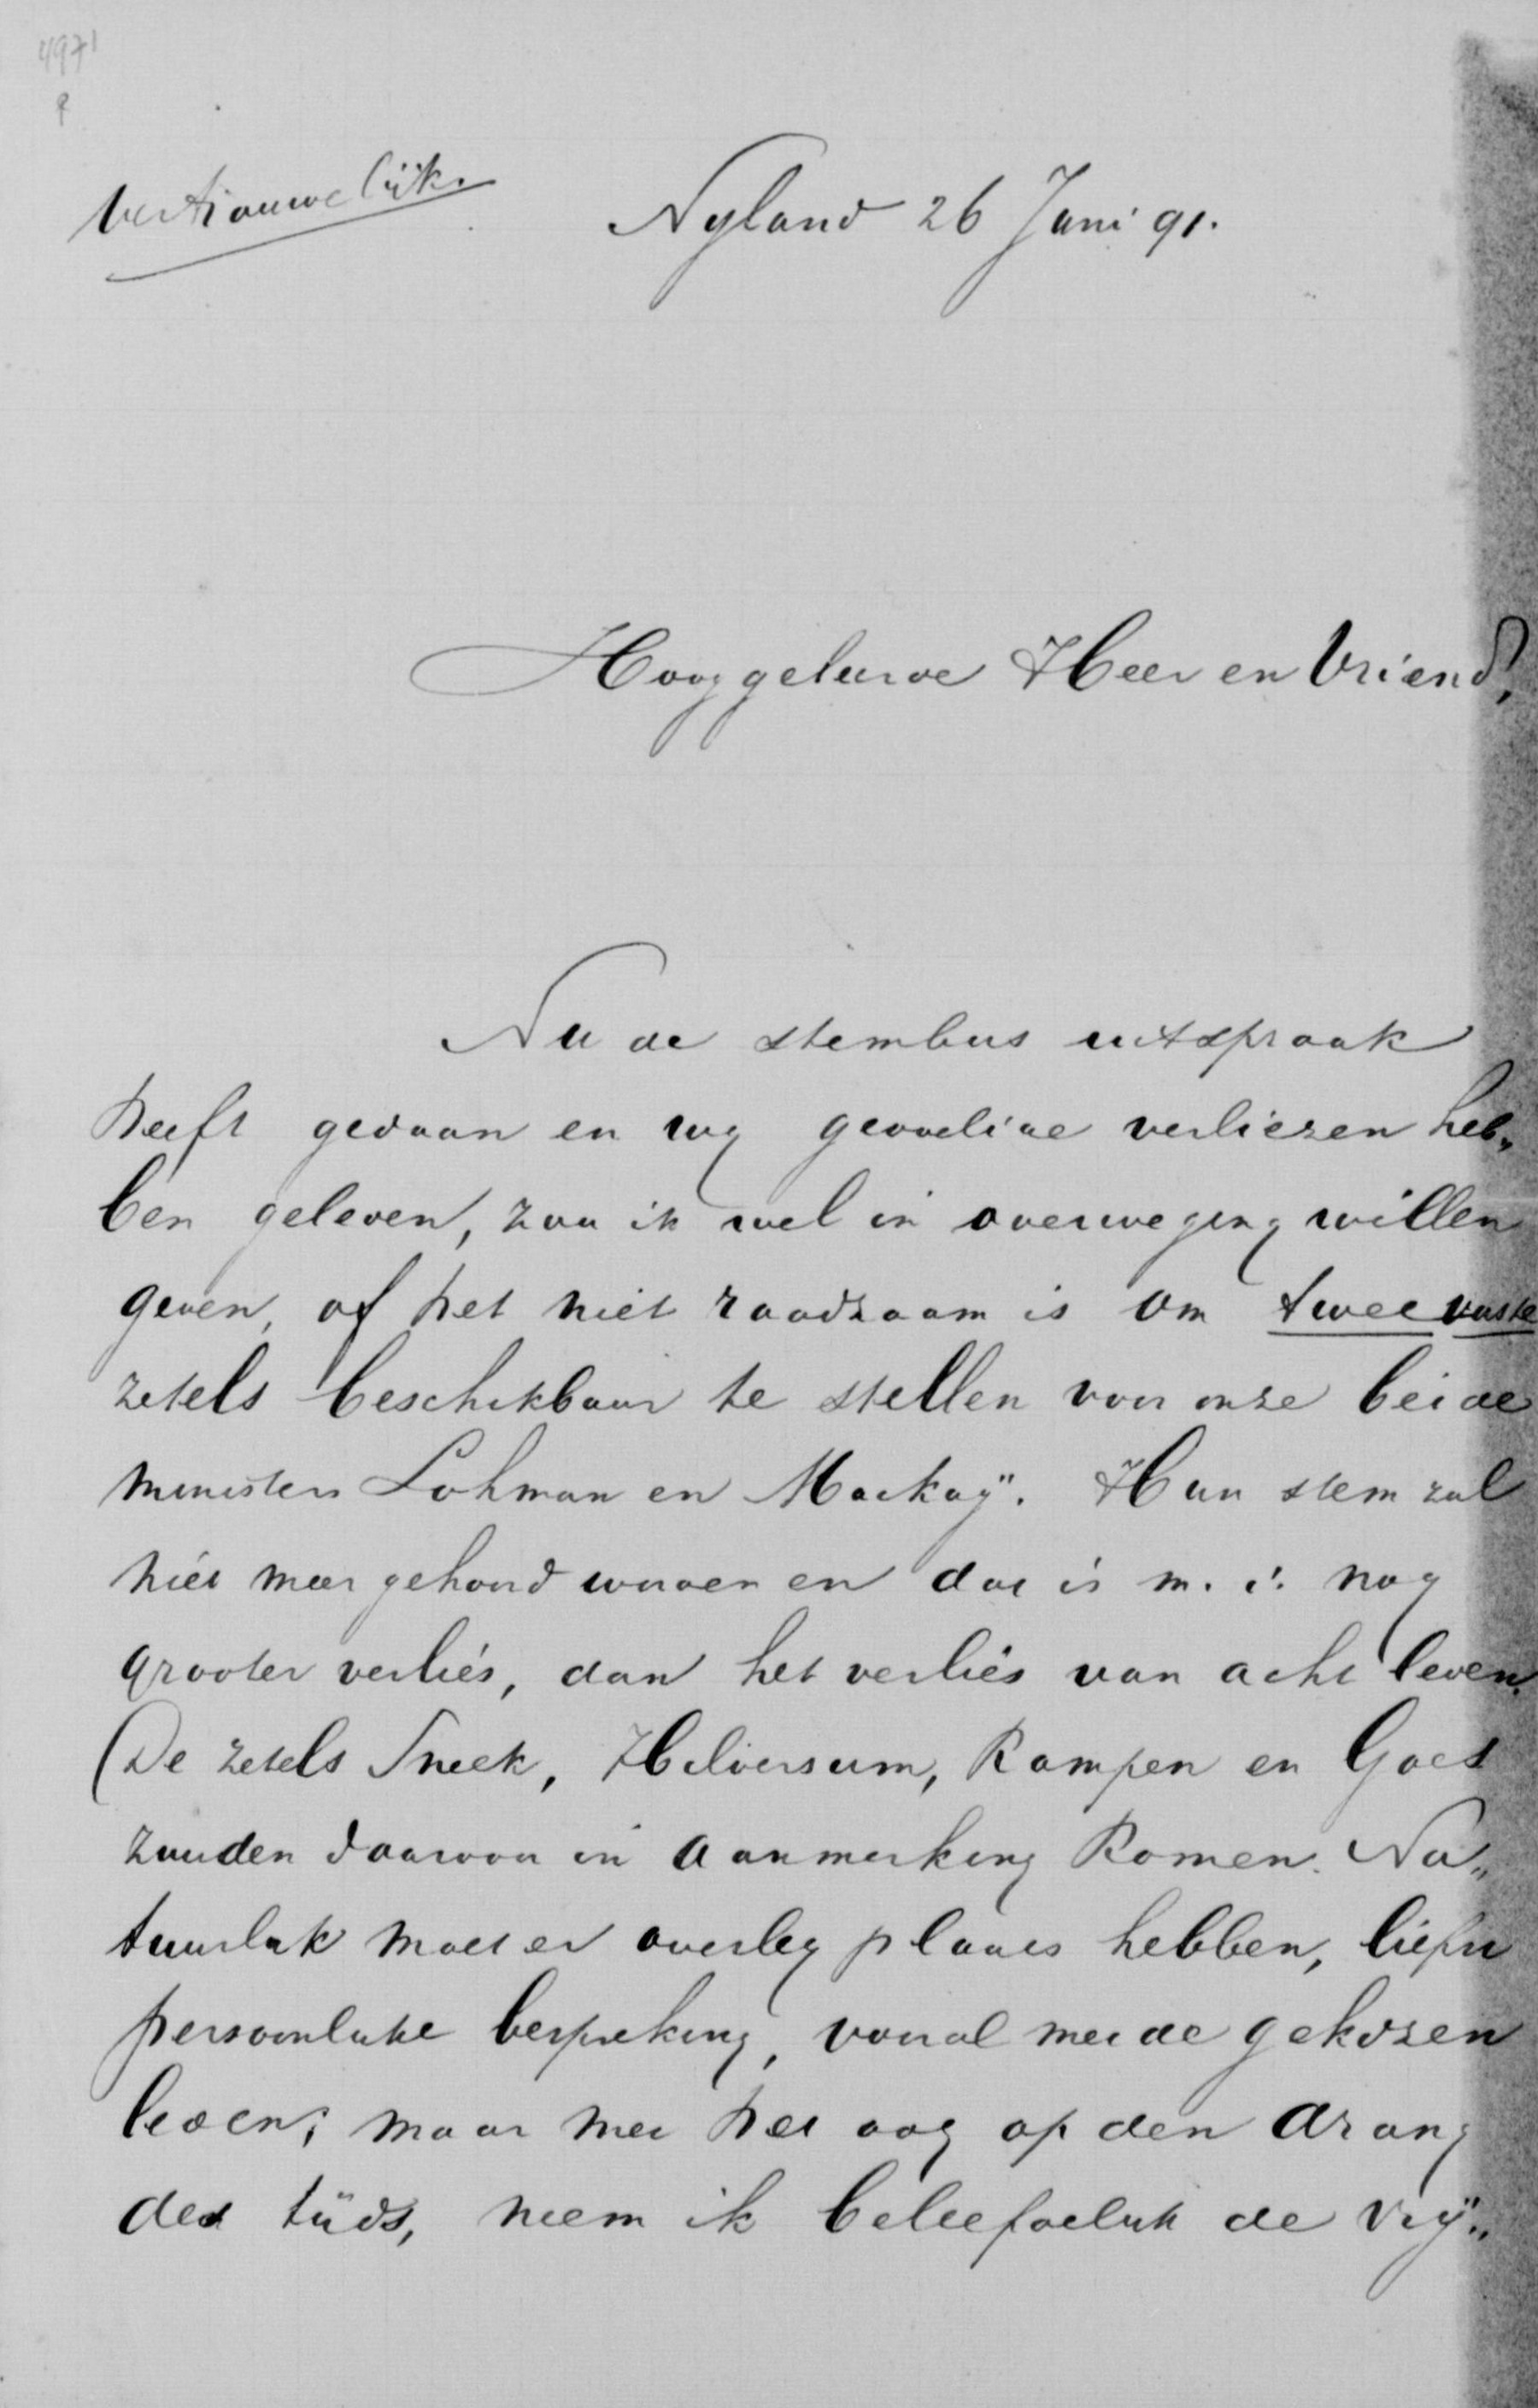 4971
Vertrouwelijk.
Nyland 26 Juni 91.
Hooggeleerde Heer en Vriend,
Nu de stembus uitspraak
heeft gedaan en wy gevoelige verliezen heb„
ben geleden, zou ik wel in overweging willen
geven, of het niet raadzaam is om twee vaste
zetels beschikbaar te stellen voor onze beide
ministers Lohman en Mackaÿ. Hun stem zal
niet meer gehoord worden en dat is m. i. nog
grooter verlies, dan het verlies van acht leden.
(De zetels Sneek, Hilversum, Kampen en Goes
zouden daarvoor in aanmerking komen. Na„
tuurlijk moet er overleg plaats hebben, liefst
persoonlijke bespreking, vooral met de gekozen
leden; maar met het oog op den drang
des tijds, neem ik beleefdelijk de vrij„